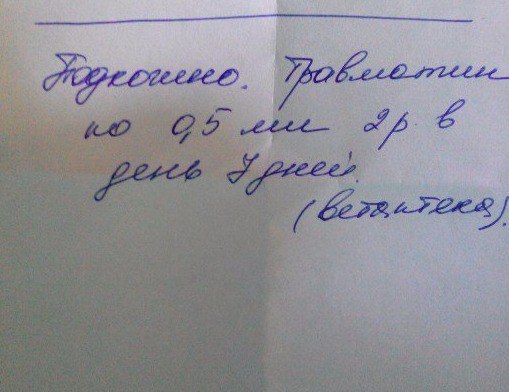 Подкожно. Травматин
по 0,5 мл 2 р. в
день 7 дней.
(ветаптека).